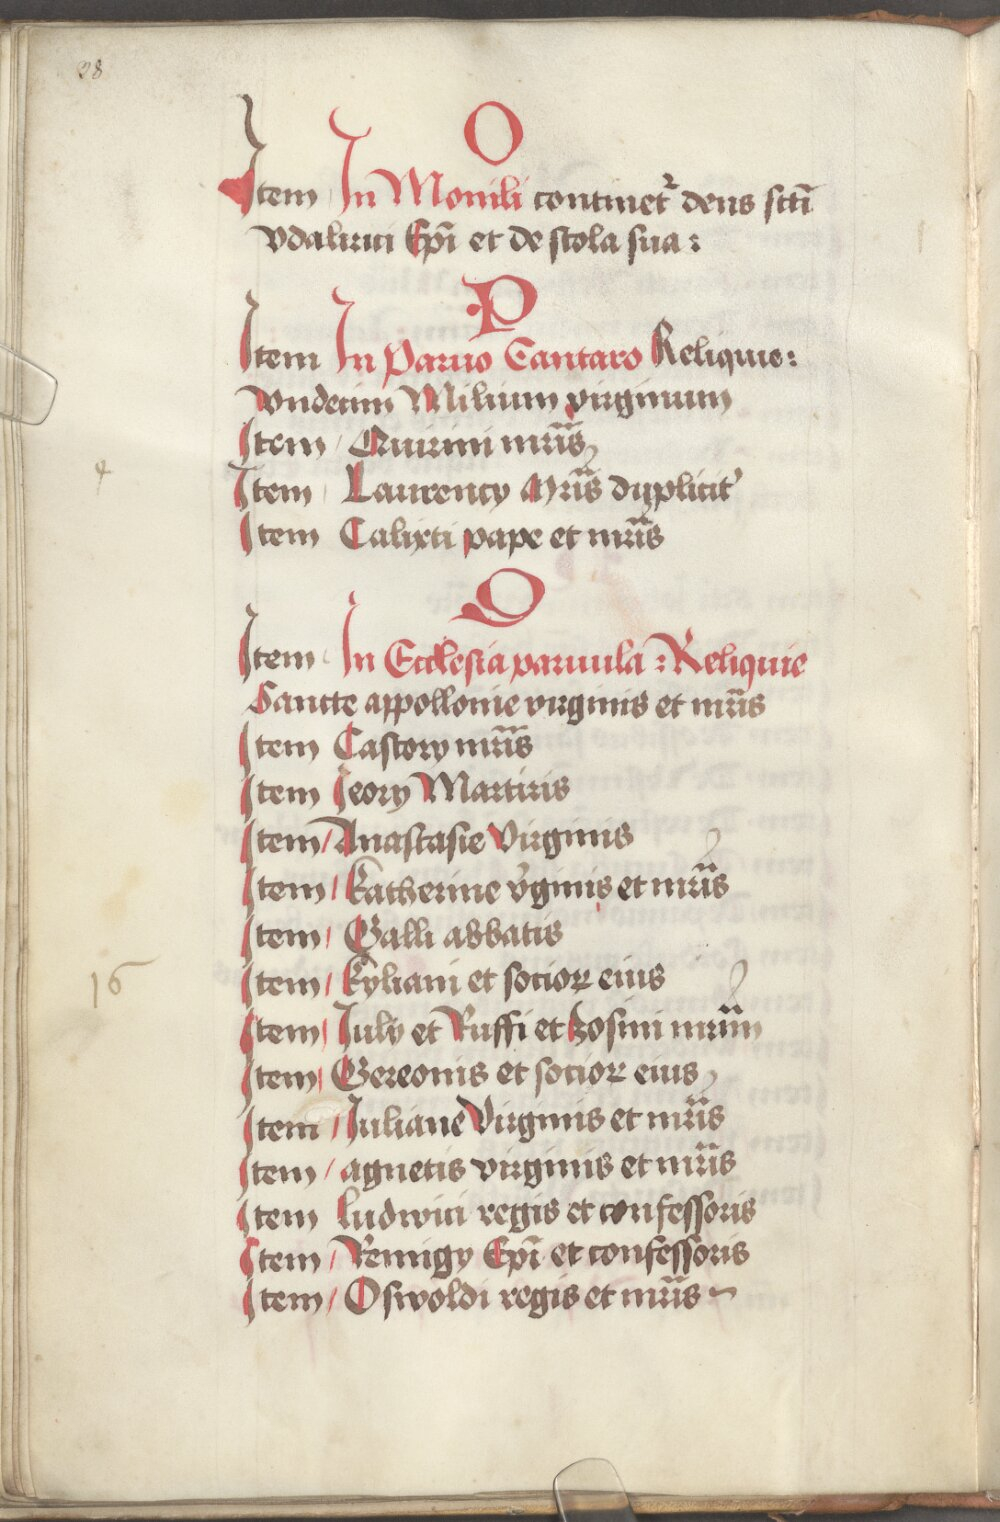 28
O
Item In Monili continet᷑ dens scti̅
Vdalrici Epi̅ et de stola sua :
P
Item In Paruo Cantaro Reliquie :
Vndecim Milium virginum
Item Quirini mr̅is
Item Laurency Mr̅is dupplicit᷑
Item Calixti pape et mr̅is
Q
Item In Ecclesia paruula : Reliquie
Sancte appollonie virginis et mr̅is
Item Castory mr̅is
Item Jeory Martiris
Item Anastasie Virginis
Item Katherine v᷑ginis et mr̅is
Item Galli abbatis
16
Item Kyliani et socioꝝ eius
Item July et Ruffi et Zosimi mr̅um
Item Gereonis et socioꝝ eius
Item Juliane Virginis et mr̅is
Item agnetis virginis et mr̅is
Item Ludwici regis et confessoris
Item Remigy Epi̅ et confessoris
Item Oswoldi regis et mr̅is